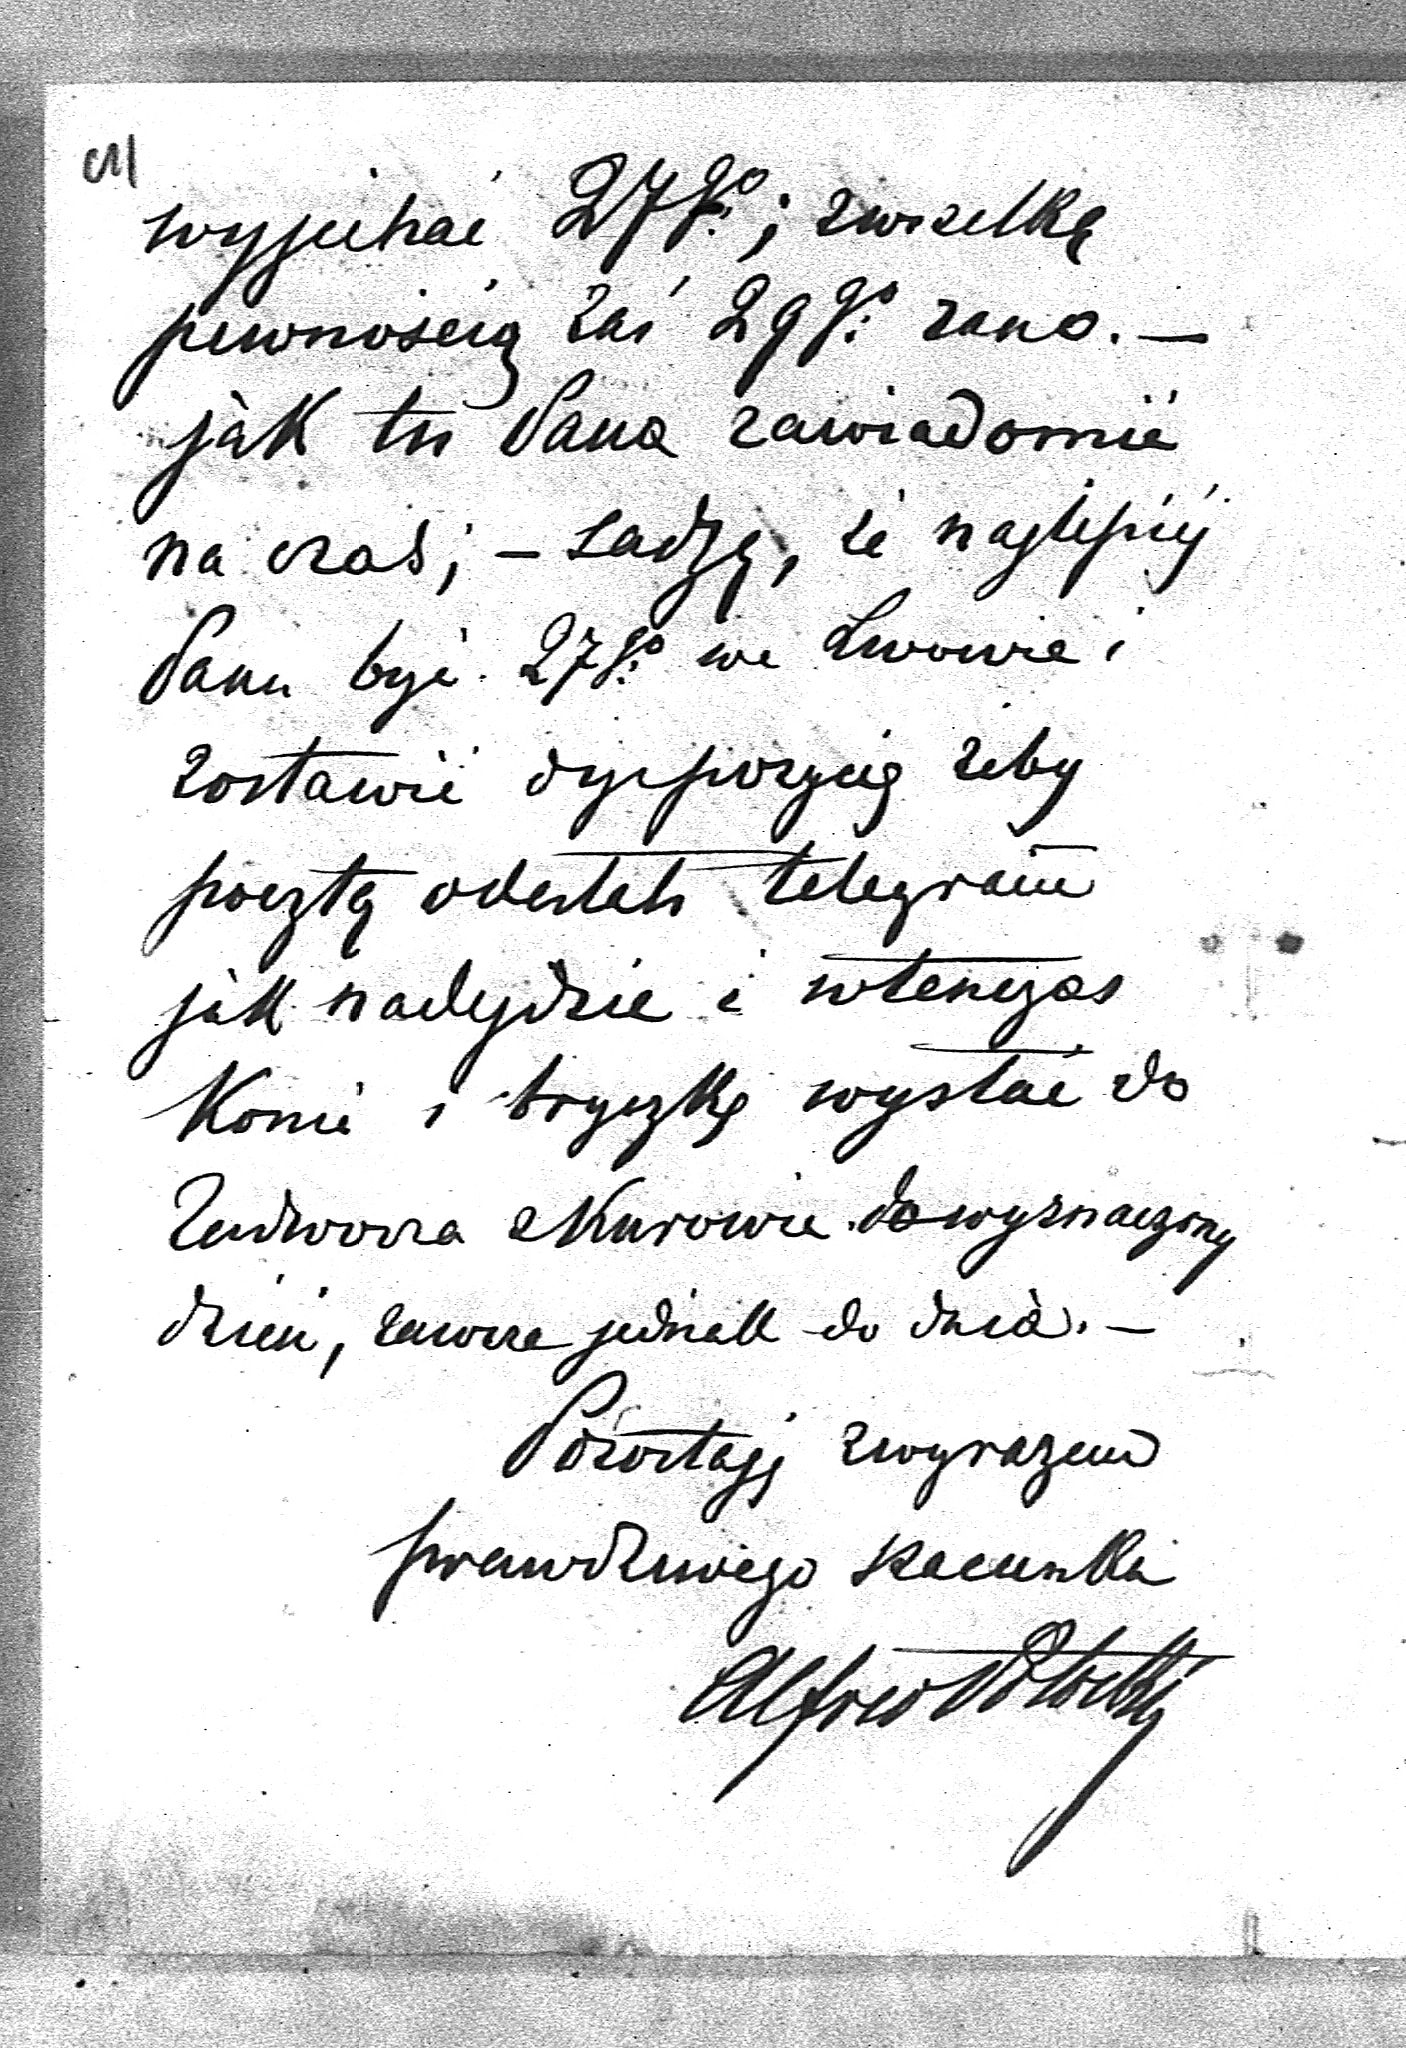 wyjechać 27go; zwszelką
pewnością zaś 29go rano. —
jak tu Pana zawiadomić
na czas; — sadzę, że najlepiéj
Panu być 27go we Lwowie i
zostawić dyspozycię żeby
pocztą odesłali telegram
jak nadejdzie i wtenczas
Konie i bryczkę wysłać do
Zadworza Kurowie do wyznaczony
dzień, zawsze jednak do dnia. —
Pozostaję zwyrazem
prawdziwego szacunku
Alfred Potocki